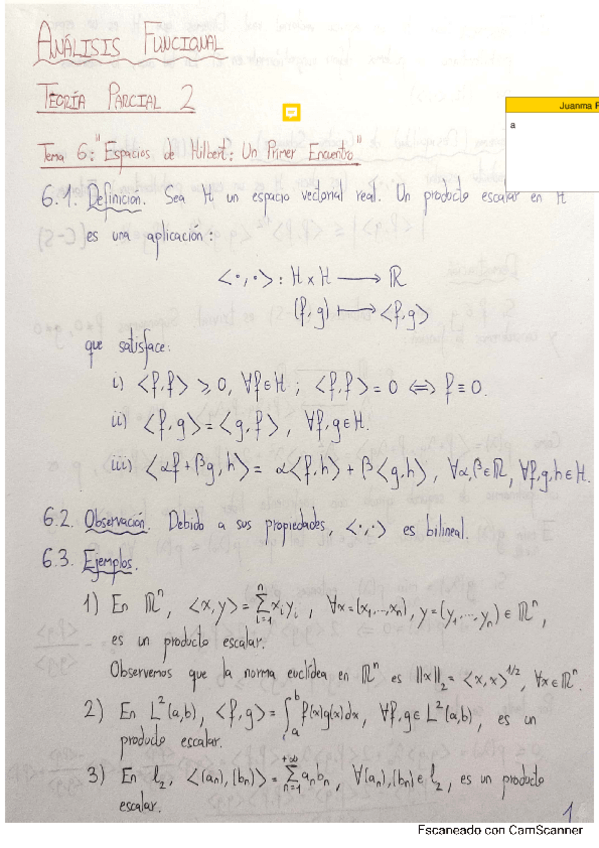 ANÁLISIS FUNCIONAL
TEORÍA PARCIAL 2
Juanma P
a
Tema 6: "Espacios de Hilbert: Un Primer Encuentro"
6.1. Definición. Sea H un espacio vectorial real. Un producto escalar en H
es una aplicación:
<·,·>: H x H ⟶ ℝ
(f,g) ⟼ <f,g>
que satisface:
i) <f,f> ⩾ 0, ∀f∈H ; <f,f> = 0 ⟺ f ≡ 0.
ii) <f,g> = <g,f>, ∀f,g∈H.
iii) <αf+βg,h> = α<f,h> + β<g,h>, ∀α,β∈ℝ, ∀f,g,h∈H.
6.2. Observación. Debido a sus propiedades, <·,·> es bilineal.
6.3. Ejemplos.
1) En ℝⁿ, <x,y> = ∑ᵢ₌₁ⁿ xᵢyᵢ, ∀x=(x₁,...,xₙ), y=(y₁,...,yₙ) ∈ ℝⁿ,
es un producto escalar.
Observemos que la norma euclídea en ℝⁿ es ||x||₂ = <x,x>^{1/2}, ∀x∈ℝⁿ.
2) En L²(a,b), <f,g> = ∫ₐᵇ f(x)g(x)dx, ∀f,g∈L²(a,b), es un
producto escalar.
3) En l₂, <(aₙ),(bₙ)> = ∑ₙ₌₁^{+∞} aₙbₙ, ∀(aₙ),(bₙ)∈l₂, es un producto
escalar.
1
Escaneado con CamScanner